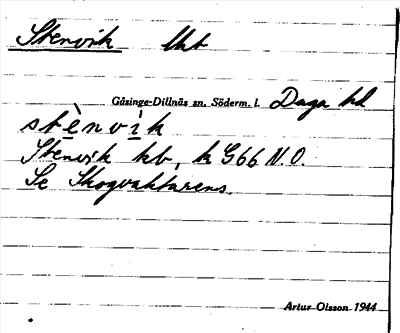 Stenvik lkt
Gåsinge-Dillnäs sn. Söderm. l. Daga hd
stènvìk
Stenvik kb, k G66 N.O.
Se Skogvaktarens.
Artur Olsson 1944